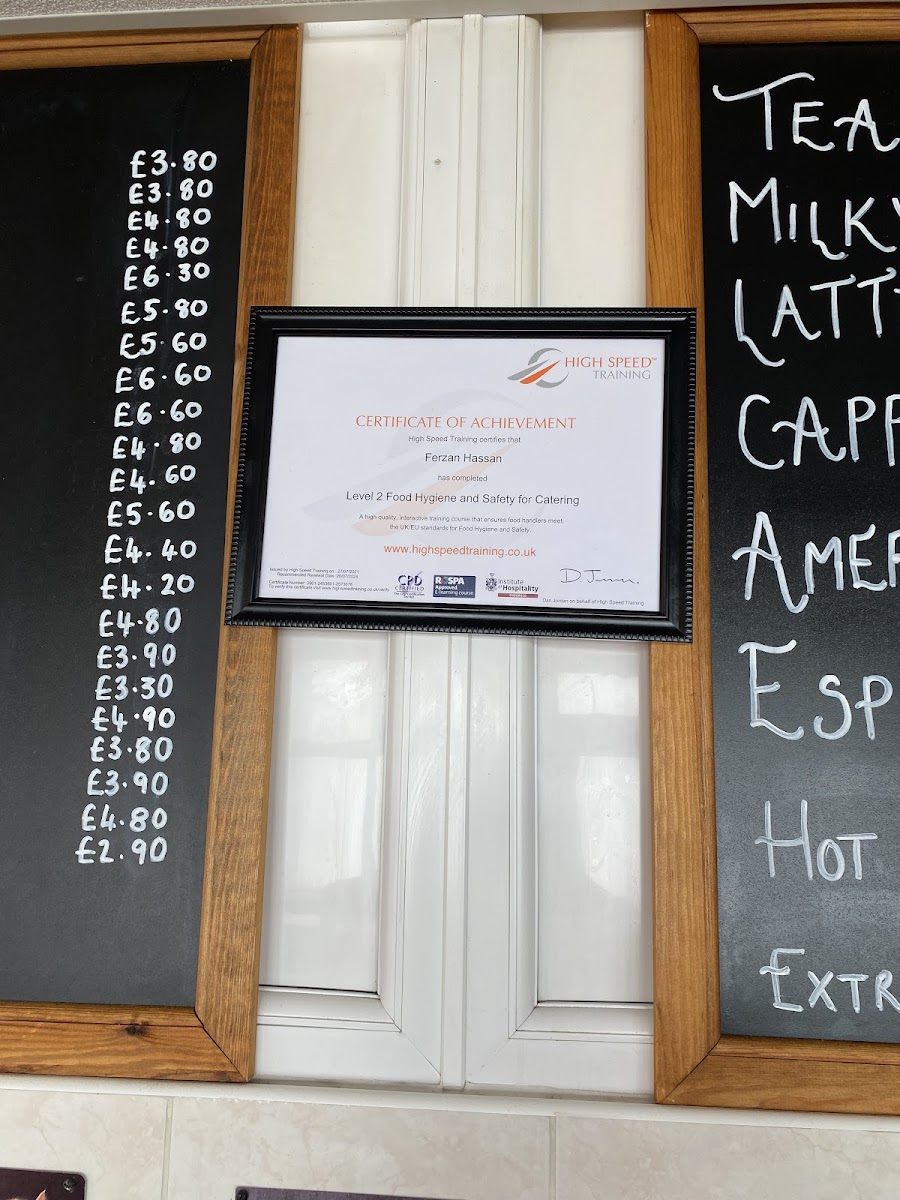 £3.80
£3.80
£4.80
£4.80
£6.30
£5.80
£5.60
£6.60
£6.60
£4.80
£4.60
£5.60
£4.40
£4.20
£4.80
£3.90
£3.30
£4.90
£3.80
£3.90
£4.80
£2.90
HIGH SPEED™
TRAINING
CERTIFICATE OF ACHIEVEMENT
High Speed Training certifies that
Ferzan Hassan
has completed
Level 2 Food Hygiene and Safety for Catering
A high quality, interactive training course that ensures food handlers meet
the UK/EU standards for Food Hygiene and Safety.
www.highspeedtraining.co.uk
Issued by High Speed Training on : 27/07/2021
Recommended Renewal Date :26/07/2024
Certificate Number:
To verify this certificate visit www.highspeedtraining.co.uk/verify
CPD
CERTIFIED
RoSPA
Approved
E-learning course
Institute
of Hospitality
D. J
Dan Jordan on behalf of High Speed Training
TEA
MILKY
LATT
CAPP
AMER
ESP
HOT
EXTR